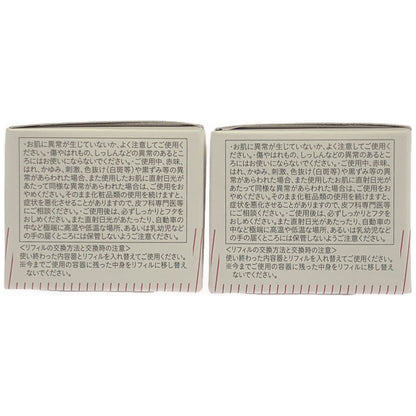 ・お肌に異常が生じていないか、よく注意してご使用く
ださい。・傷やはれもの、しっしんなどの異常のあるとこ
ろにはお使いにならないでください。・ご使用中、赤味、
はれ、かゆみ、刺激、色抜け(白斑等)や黒ずみ等の異
常があらわれた場合、また使用したお肌に直射日光が
あたって同様な異常があらわれた場合、ご使用をおや
めください。そのまま化粧品類の使用を続けますと、
症状を悪化させることがありますので、皮フ科専門医等
にご相談ください。・ご使用後は、必ずしっかりとフタを
おしめください。また直射日光があたったり、自動車の
中など極端に高温や低温な場所、あるいは乳幼児など
の手の届くところには保管しないようご注意ください。
<リフィルの交換方法と交換時の注意>
使い終わった内容器とリフィルを入れ替えてご使用ください。
※今までご使用の容器に残った中身をリフィルに移し替え
ないでください。
・お肌に異常が生じていないか、よく注意してご使用く
ださい。・傷やはれもの、しっしんなどの異常のあるとこ
ろにはお使いにならないでください。・ご使用中、赤味、
はれ、かゆみ、刺激、色抜け(白斑等)や黒ずみ等の異
常があらわれた場合、また使用したお肌に直射日光が
あたって同様な異常があらわれた場合、ご使用をおや
めください。そのまま化粧品類の使用を続けますと、
症状を悪化させることがありますので、皮フ科専門医等
にご相談ください。・ご使用後は、必ずしっかりとフタを
おしめください。また直射日光があたったり、自動車の
中など極端に高温や低温な場所、あるいは乳幼児など
の手の届くところには保管しないようご注意ください。
<リフィルの交換方法と交換時の注意>
使い終わった内容器とリフィルを入れ替えてご使用ください。
※今までご使用の容器に残った中身をリフィルに移し替え
ないでください。